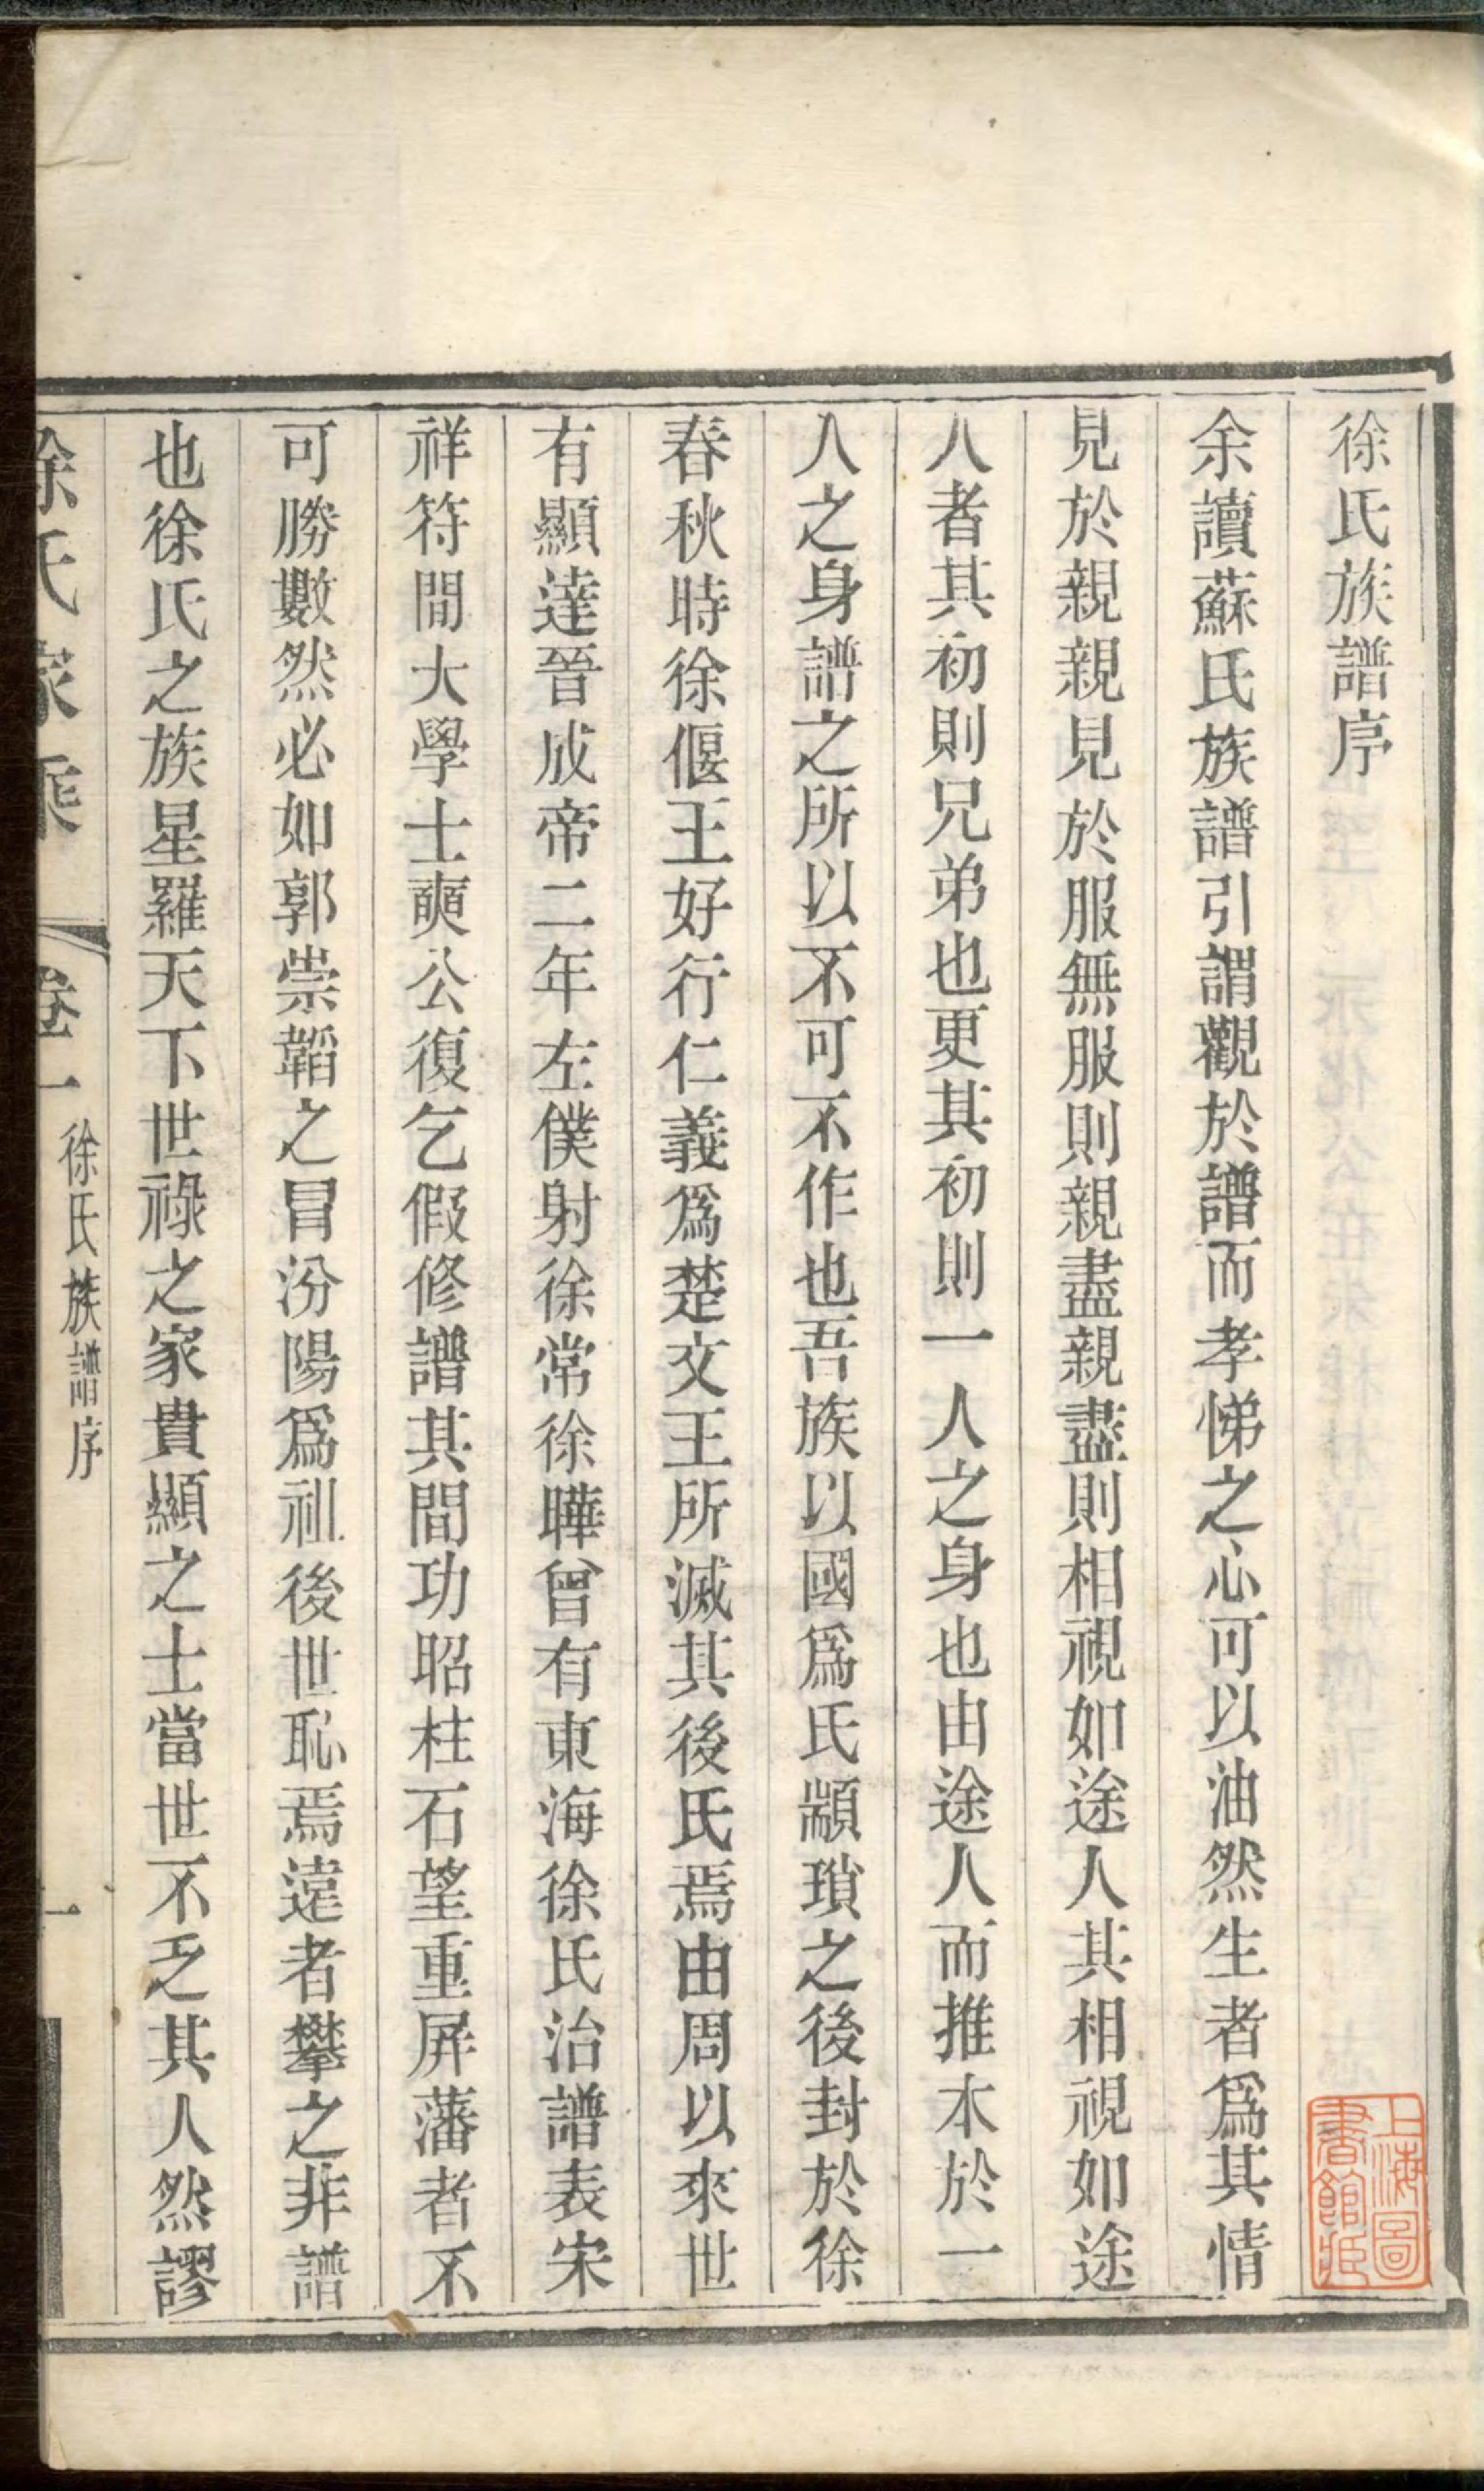 徐氏族譜序
余讀蘇氏族譜引謂觀於譜而孝悌之心可以油然生者爲其情
見於親親見於服無服則親盡親盡則相視如途人其相視如途
人者其初則兄弟也更其初則一人之身也由途人而推本於一
人之身譜之所以不可不作也吾族以國爲氏顓瑣之後封於徐
春秋時徐偃王好行仁義爲楚文王所滅其後氏焉由周以來世
有顯達晉成帝二年左僕射徐常徐曄曾有東海徐氏治譜表宋
祥符間大學士奭公復乞假修譜其間功昭柱石望重屏藩者不
可勝數然必如郭崇韜之冒汾陽爲祖後世恥焉遠者攀之非譜
也徐氏之族星羅天下世祿之家貴顯之士當世不乏其人然謬
徐氏家乘 卷一 徐氏族譜序 一
上海圖書館藏